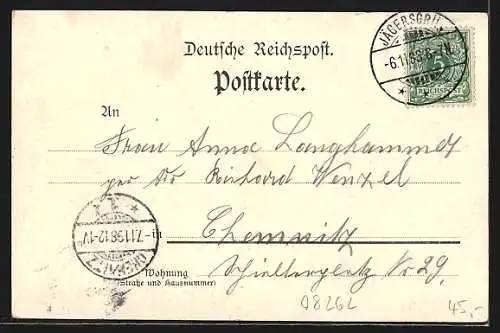 Deutsche Reichspost.
Postkarte.
JÄGERSGRÜ
-6.11.98 6-7N.
5
REICHSPOST
An
Frau Anna Langhammer
per Adr. Reinhard Wenzel
in Chemnitz
CHEMNITZ
7.11.98.12-1V.
Wohnung
(Straße und Hausnummer)
Schillerplatz No 29.
08262
45,-